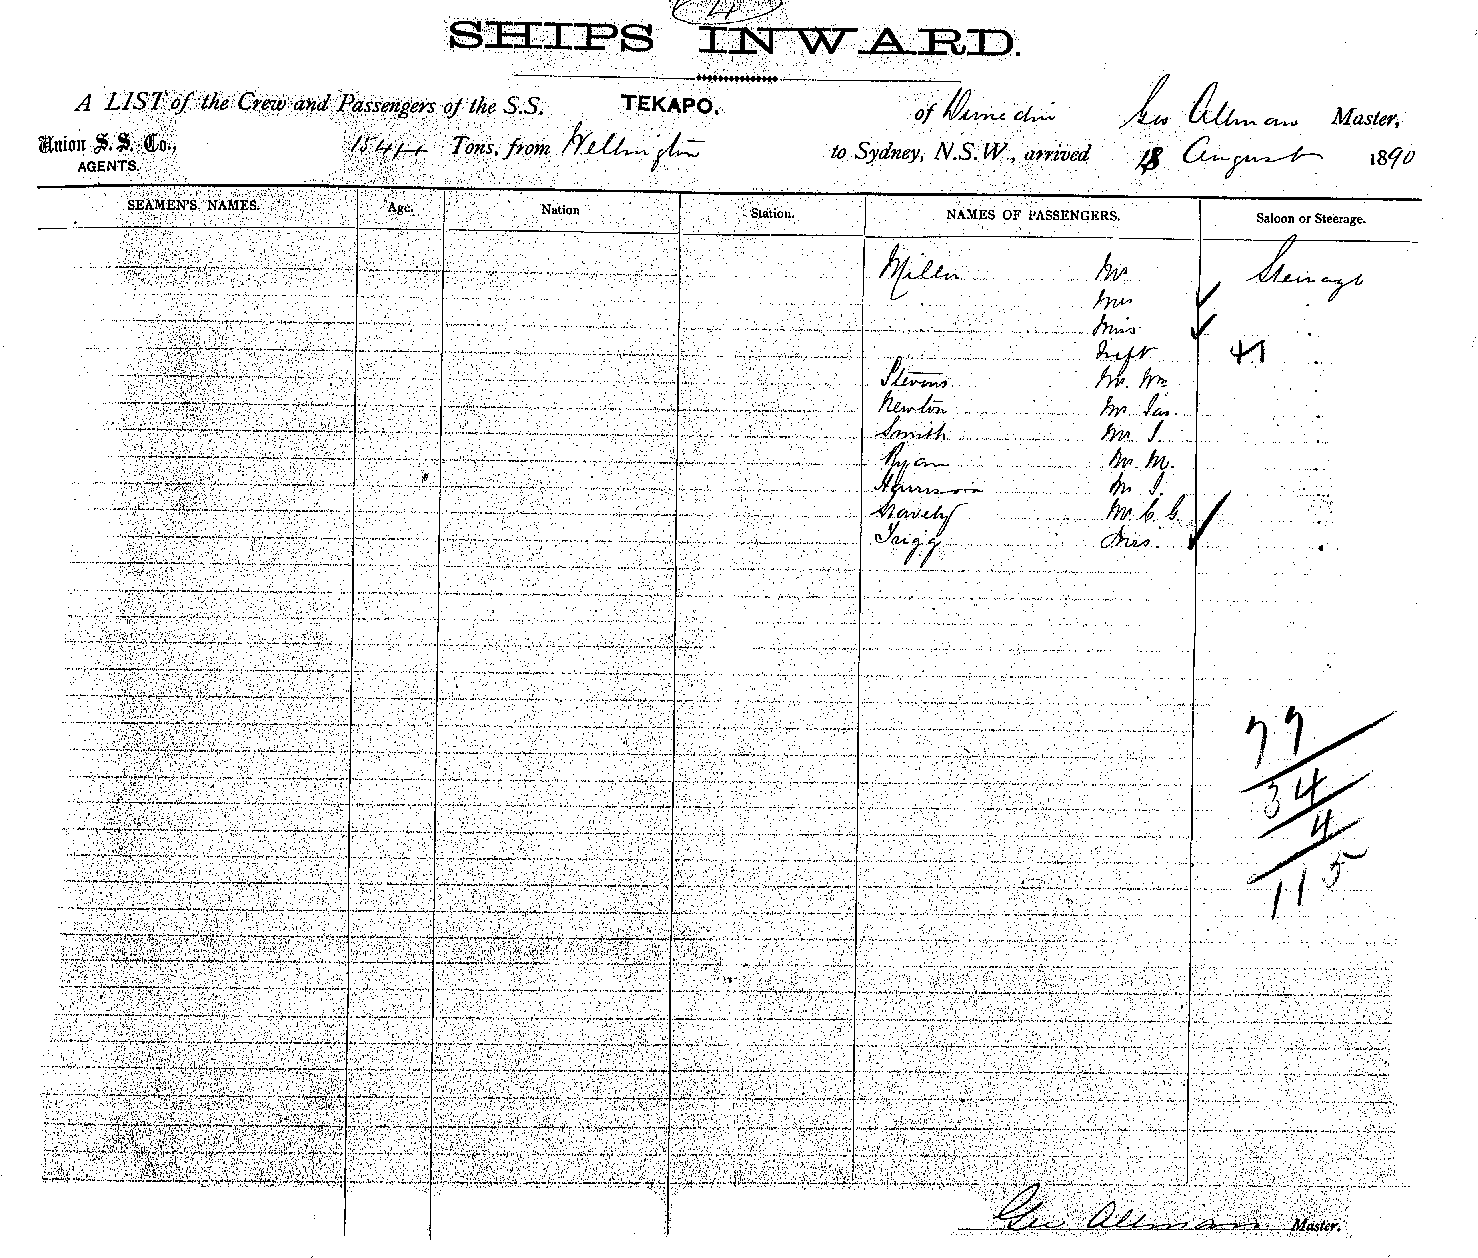 4
SHIPS INWARD.
A LIST of the Crew and Passengers of the S.S. TEKAPO. of Dunedin Geo Allman Master,
Union S. S. Co., AGENTS. 1544 Tons, from Wellington to Sydney, N.S.W., arrived 18 August 1890
SEAMEN'S NAMES. Age. Nation Station. NAMES OF PASSENGERS. Saloon or Steerage.
Miller Mr Steerage
Mrs ✓
Miss ✓
Inft
Stevens Mr. Wm
Newton Mr Jas.
Smith Mr J.
Ryan Mr. M.
Harrison Mr J.
Stavely Mr. C. C.
Trigg Miss. ✓
77
34
4
115
Geo Allman Master.